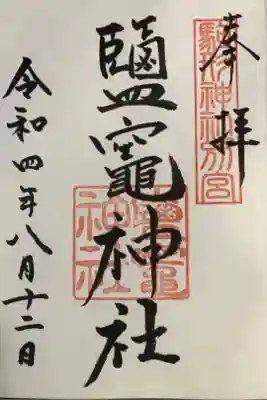 奉拝
駒形神社別宮
鹽竈神社
鹽竈神社
令和四年八月十二日